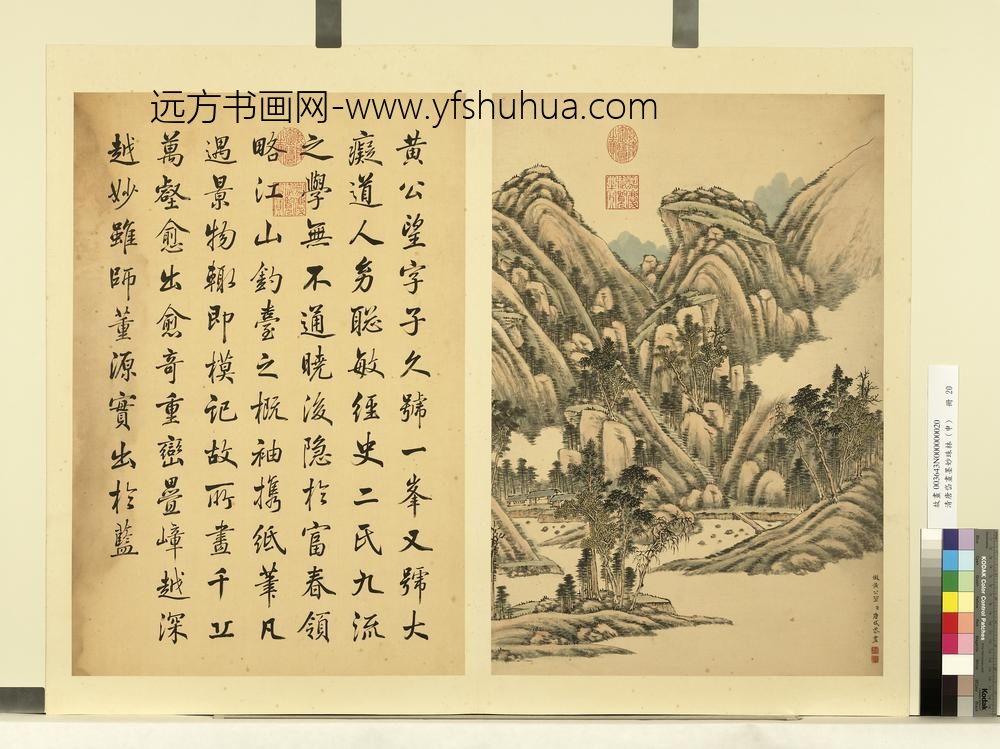 远方书画网-www.yfshuhua.com
黄公望字子久號一峯又號大
癡道人穷聪敏經史二氏九流
之學無不通曉後隐於富春領
略江山釣臺之概袖携纸筆凡
遇景物輙即模记故所畫千丘
萬壑愈出愈奇重巒疊嶂越深
越妙雖師董源實出於藍
故畫003643N000000020
清唐岱畫墨妙珠林(申) 冊 20
KODAK Color Control Patches
Kodak